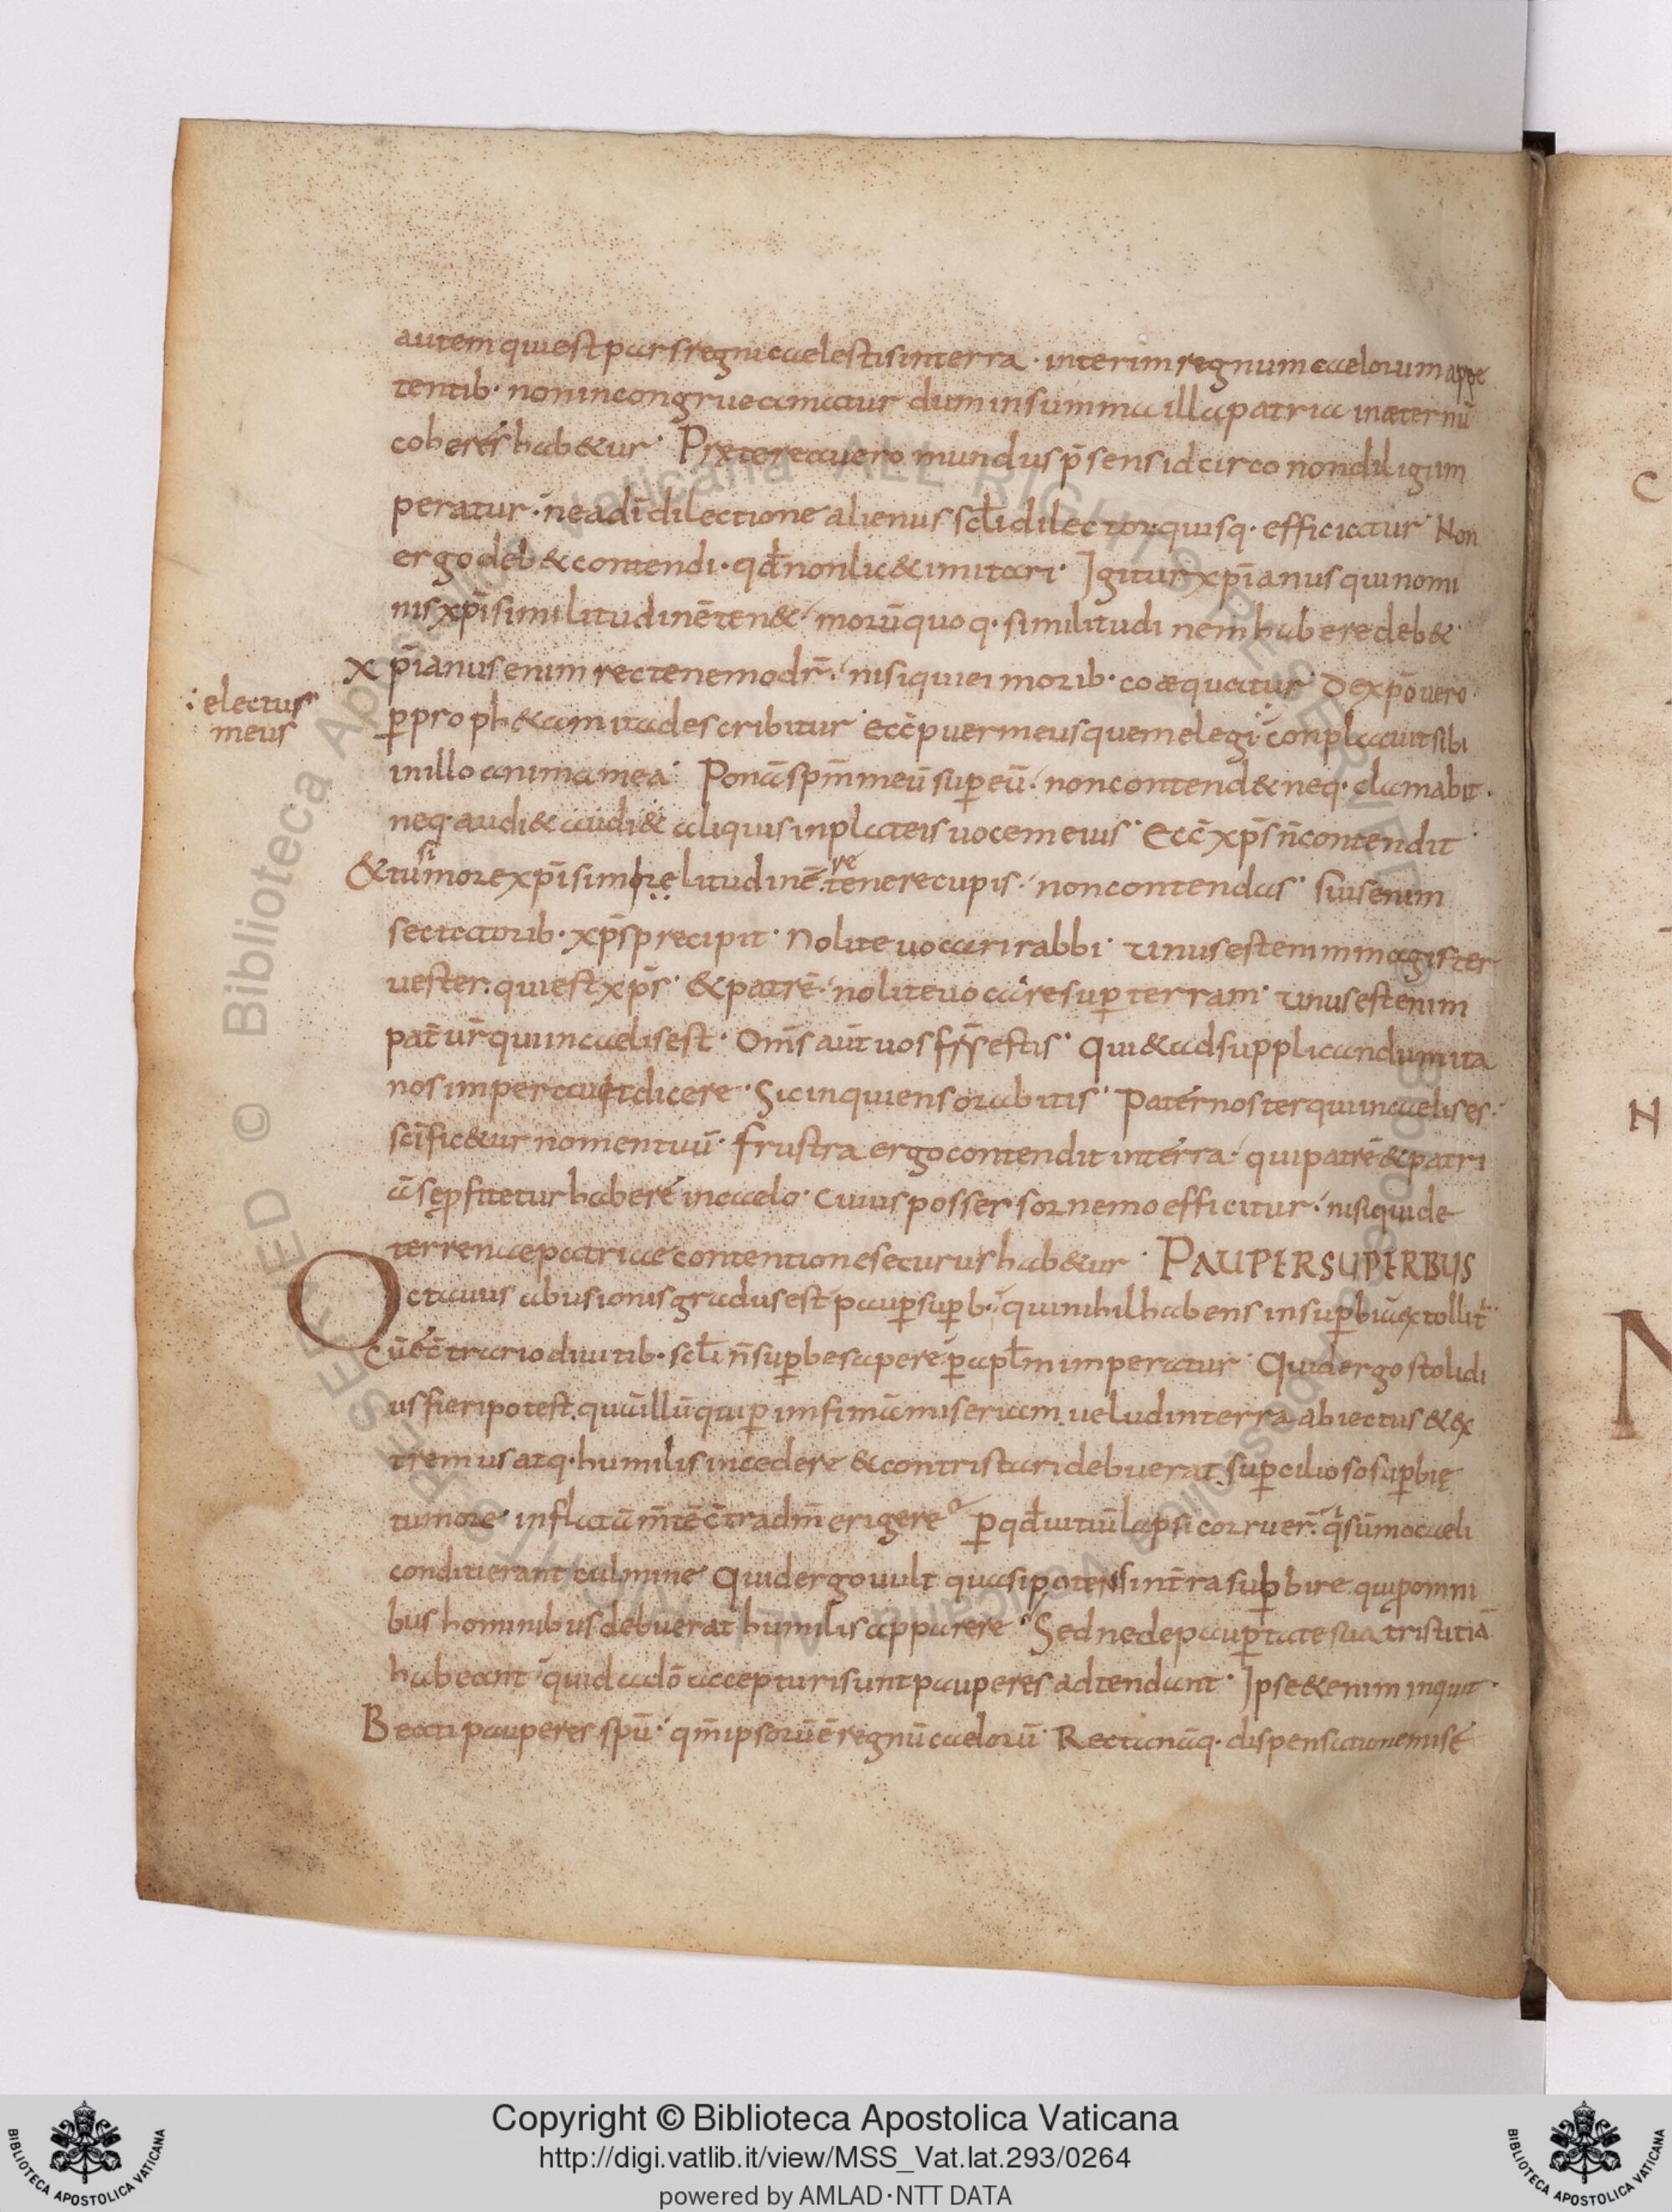 autem qui est pars regni caelestis in terra · interim regnum caelorum appe
tentib· non incongrue amatur dum in summa illa patria in æternū
coheres hab&ur· Prętere a uero mundus p̄sens idcirco non diligi im
peratur· ne a dī dilectione alienus sc̄li dilector quisq· efficiatur· Non
ergo deb& contendi· qđ non lic& imitari· Igitur xp̄ianus qui nomi
nis xp̄i similitudinē ten& morū quoq· similitudinem habere deb&·
Xp̄ianus enim recte nemo dr̄· nisi qui ei morib· coæquatur· De xp̄o uero
p̱ proph&am ita describitur· Ecc̄ puer meus quem elegi conplacuit sibi
: electus
meus
in illo anima mea· Ponā sp̄m meū sup̱ eū· non contend& neq· clamabit·
neq· audi& audi& aliquis in plateis uocem eius· Ecc̄ xp̄s n̄ contendit
& tu si more xp̄i simore litudinē re tenere cupis· non contendas· Suis enim
sectatorib· xp̄s precipit· Nolite uocari rabbi· unus est enim magister
uester· qui est xp̄s· & patrē· nolite uocare sup̱ terram· unus est enim
pat̄ ur̄ qui in caelis est· Om̄s aūt uos fr̄s estis· Qui & ad supplicandum ita
nos imperauit dicere· Sic inquiens orabitis· Pater noster qui in caelis es·
sc̄ific&ur nomen tuū· frustra ergo contendit in terra· qui patrē & patri
ā se p̱fitetur habere in caelo· Cuius posseſsor nemo efficitur· nisi qui de
terrenae patriae contentione securus hab&ur· PAUPER SUPERBUS
Octauus abusionis gradus est paup̱ sup̱b· qui nihil habens in sup̱biā extollit̄
Cū ec̄trario diuitib· sc̄li n̄ sup̱be sapere p̱ apl̄m imperatur· Quid ergo stolidi
us fieri potest quā illū qui p̱ infimā miseriam uelud in terra abiectus & ex
tremus atq· humilis incedere & contristari debuerat sup̱cilioso sup̱bię
tumore inflatā m̄tē c̄tra dm̄ erigere P̱ qđ uitiū lapsi corruer̄· q̄ sūmo caeli
conditi erant culmine Quid ergo uult quasi potens in t̄ra sup̱bire qui p̱ omni
bus hominibus debuerat humilis apparere· Sed ne de paup̱tate sua tristitiā
habeant quid a dō accepturi sunt pauperes adtendant· Ipse & enim inquit·
Beati pauperes spū· qm̄ ipsorū ē regnū caelorū· Recta nāq· dispensatione misē
Copyright © Biblioteca Apostolica Vaticana
http://digi.vatlib.it/view/MSS_Vat.lat.293/0264
powered by AMLAD·NTT DATA